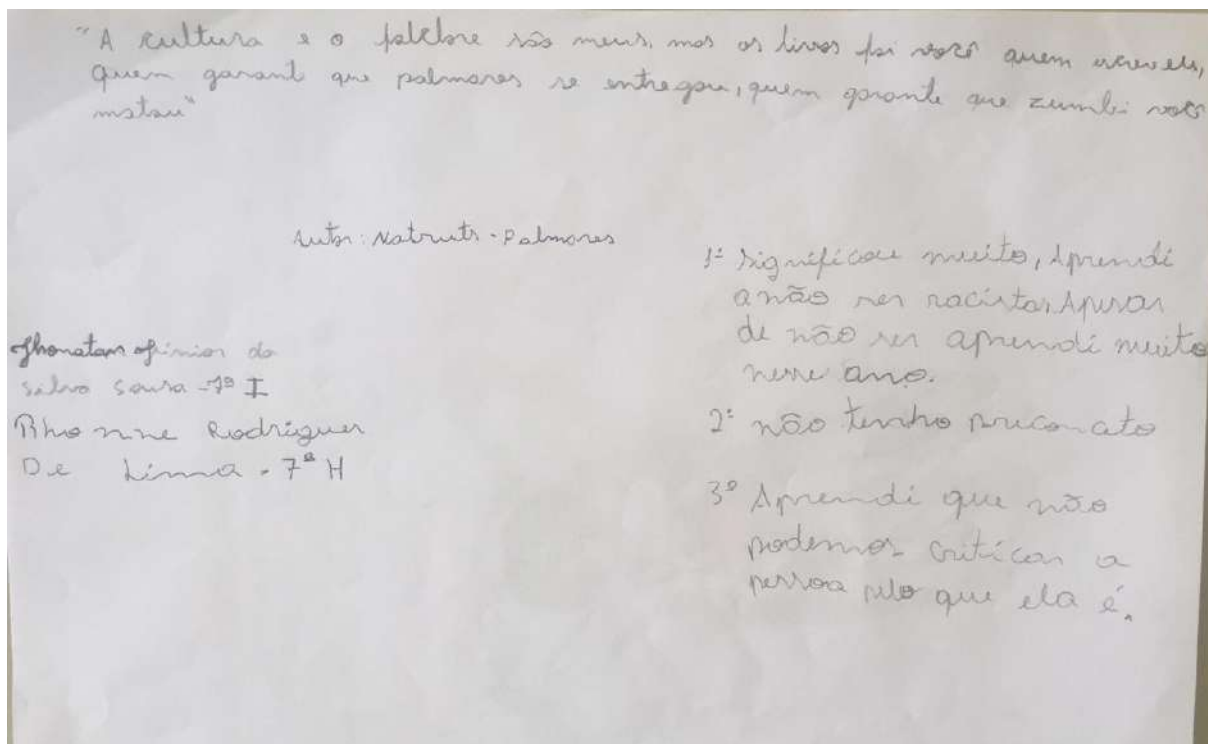 "A cultura e o folclore são meus, mas os livros foi você quem escreveu,
Quem garant que palmares se entregou, quem garante que zumbi você
matou"
Autor: Natruts - Palmares
Jhonatan do
Silva Sousa - 7º I
Rhonne Rodrigues
De Lima - 7º H
1º Significou muito, Aprendi
a não ser racista, Apesar
de não ser aprendi muito
nesse ano.
2º não tenho preconcato
3º Aprendi que não
podemos criticar a
pessoa pelo que ela é.